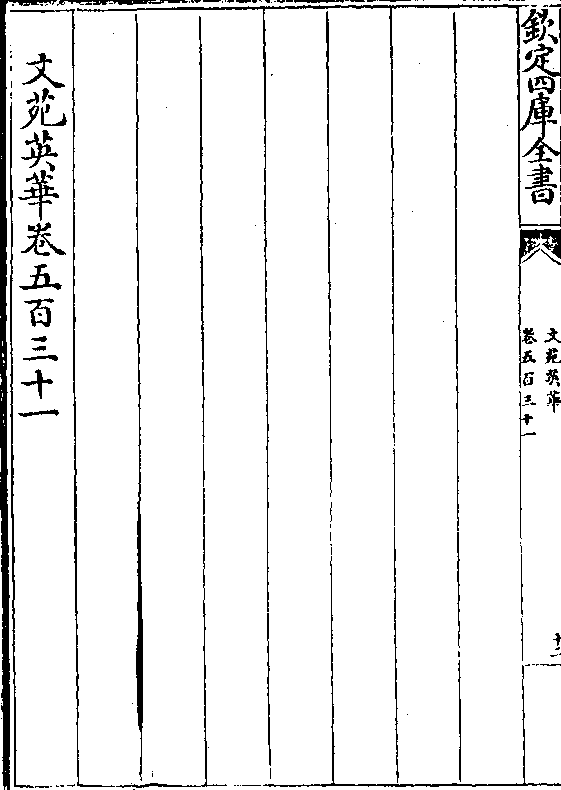 欽定四庫全書
文苑英華
卷五百三十一
文苑英華卷五百三十一